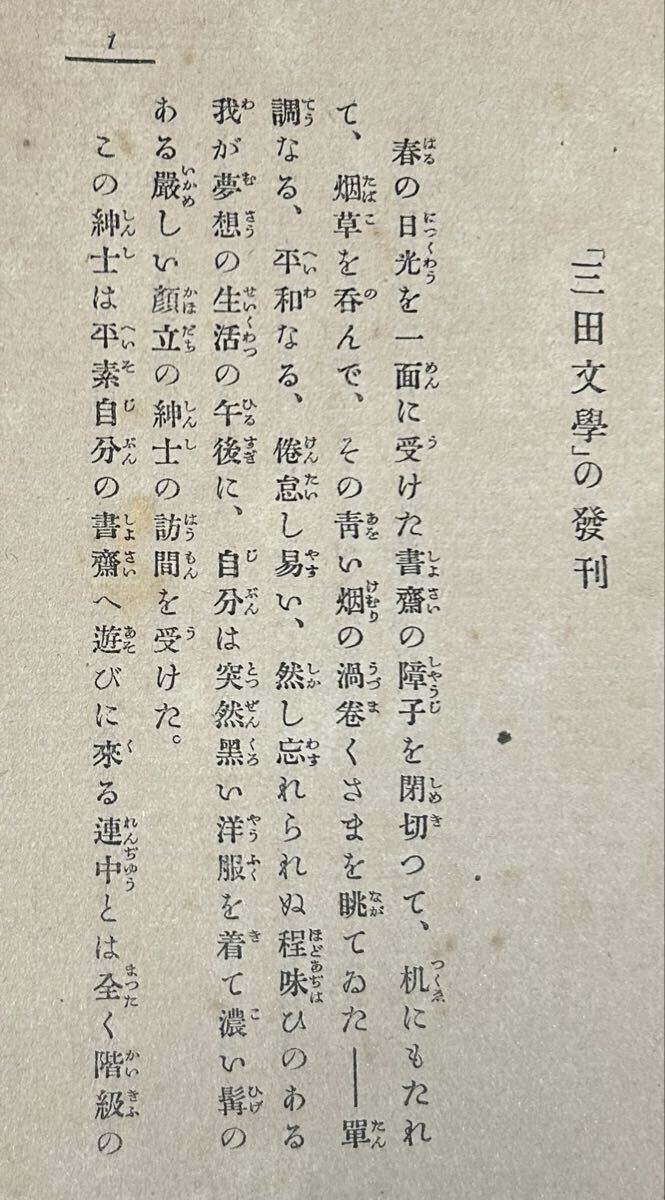 1
「三田文學」の發刊
春の日光を一面に受けた書齋の障子を閉切つて、机にもたれ
て、烟草を呑んで、その靑い烟の渦卷くさまを眺てゐた――單
調なる、平和なる、倦怠し易い、然し忘れられぬ程味ひのある
我が夢想の生活の午後に、自分は突然黑い洋服を着て濃い髯の
ある嚴しい顏立の紳士の訪問を受けた。
この紳士は平素自分の書齋へ遊びに來る連中とは全く階級の